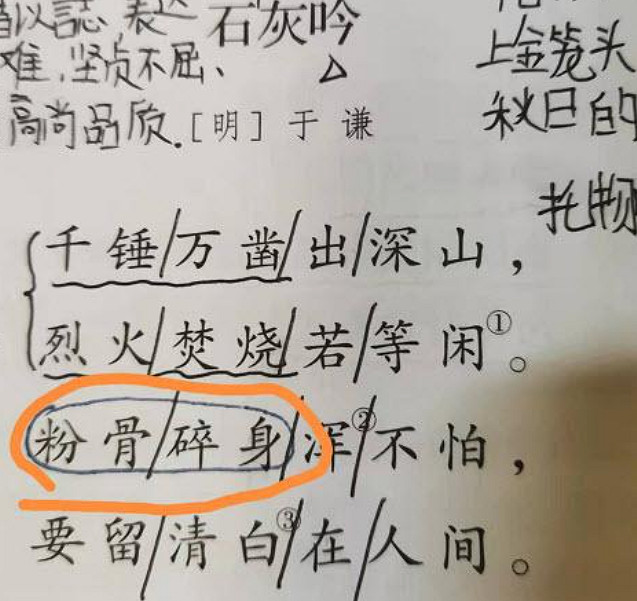 以誌,表达
石灰吟
难,坚贞不屈、
高尚品质.
[明]于谦
上金笼头
秋日的
托物
千锤/万凿/出/深山,
烈火/焚烧/若/等闲①。
粉骨/碎身/浑②/不怕,
要留/清白③/在/人间。